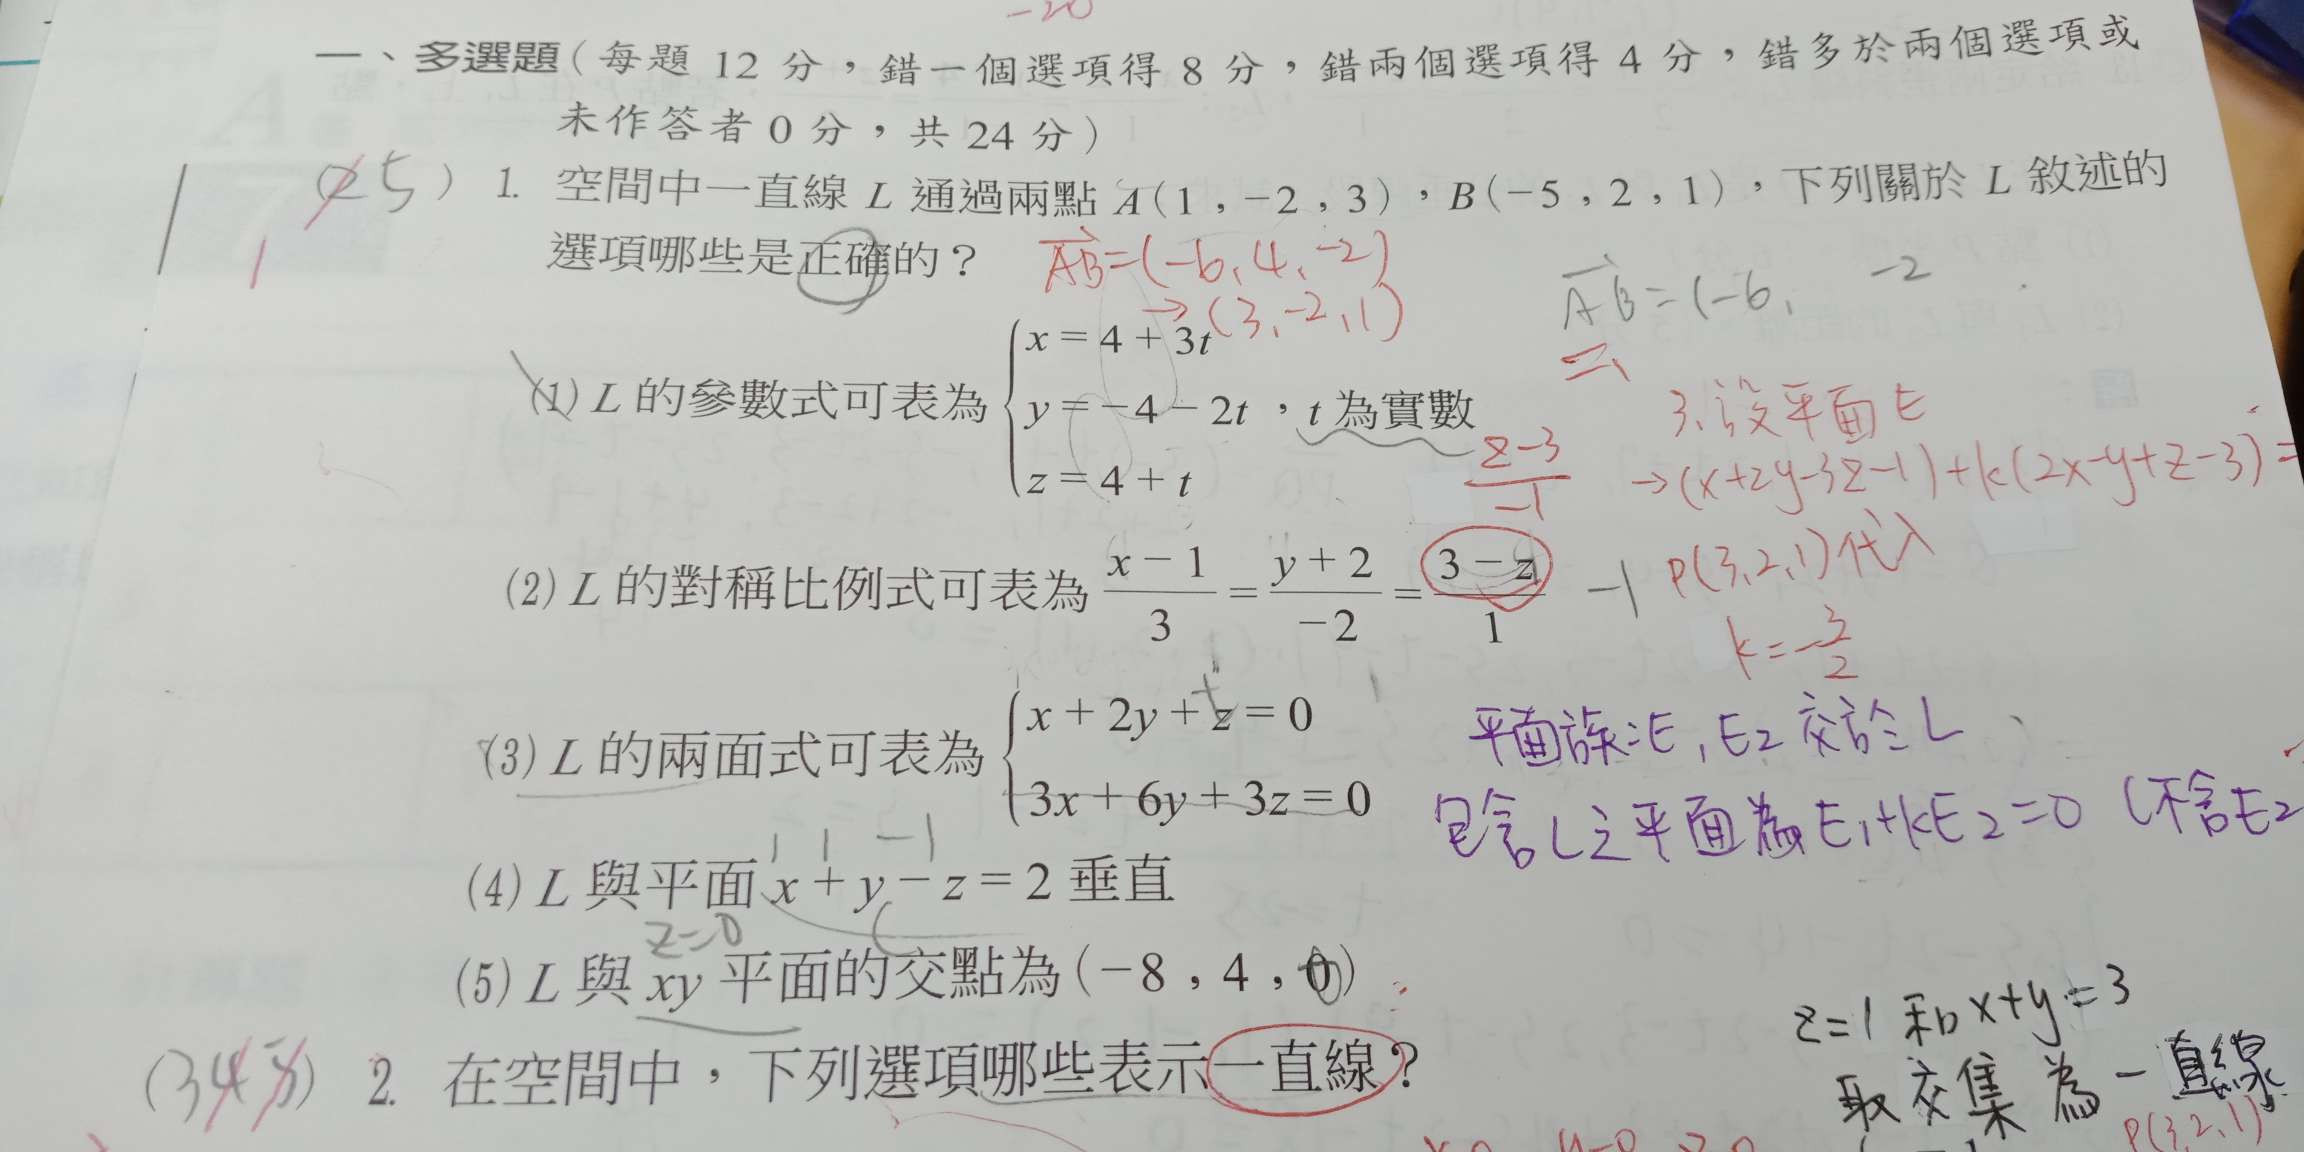 -20
一、多選題(每題 12 分，錯一個選項得 8 分，錯兩個選項得 4 分，錯多於兩個選項或
未作答者 0 分，共 24 分)
(25) 1. 空間中一直線 L 通過兩點 A(1,-2,3)，B(-5,2,1)，下列關於 L 敘述的
1
選項哪些是正確的？
AB=(-6,4,-2)
→(3,-2,1)
AB=(-6, -2
(1) L 的參數式可表為 { x = 4 + 3t
y = -4 - 2t ，t 為實數
z = 4 + t
3.設平面E
z-3
-1
→(x+2y-3z-1)+k(2x-y+z-3)=
P(3,2,1)代入
k=-3/2
(2) L 的對稱比例式可表為 (x-1)/3 = (y+2)/-2 = (3-z)/1
-1
(3) L 的兩面式可表為 { x + 2y + z = 0
3x + 6y + 3z = 0
平面族:E1E2交於L
包含L之平面為E1+kE2=0 (不含E2
1 1 -1
(4) L 與平面 x + y - z = 2 垂直
z=0
(5) L 與 xy 平面的交點為(-8,4,0)
z=1 和 x+y=3
取交集為一直線
P(3,2,1)
(345) 2. 在空間中，下列選項哪些表示一直線？